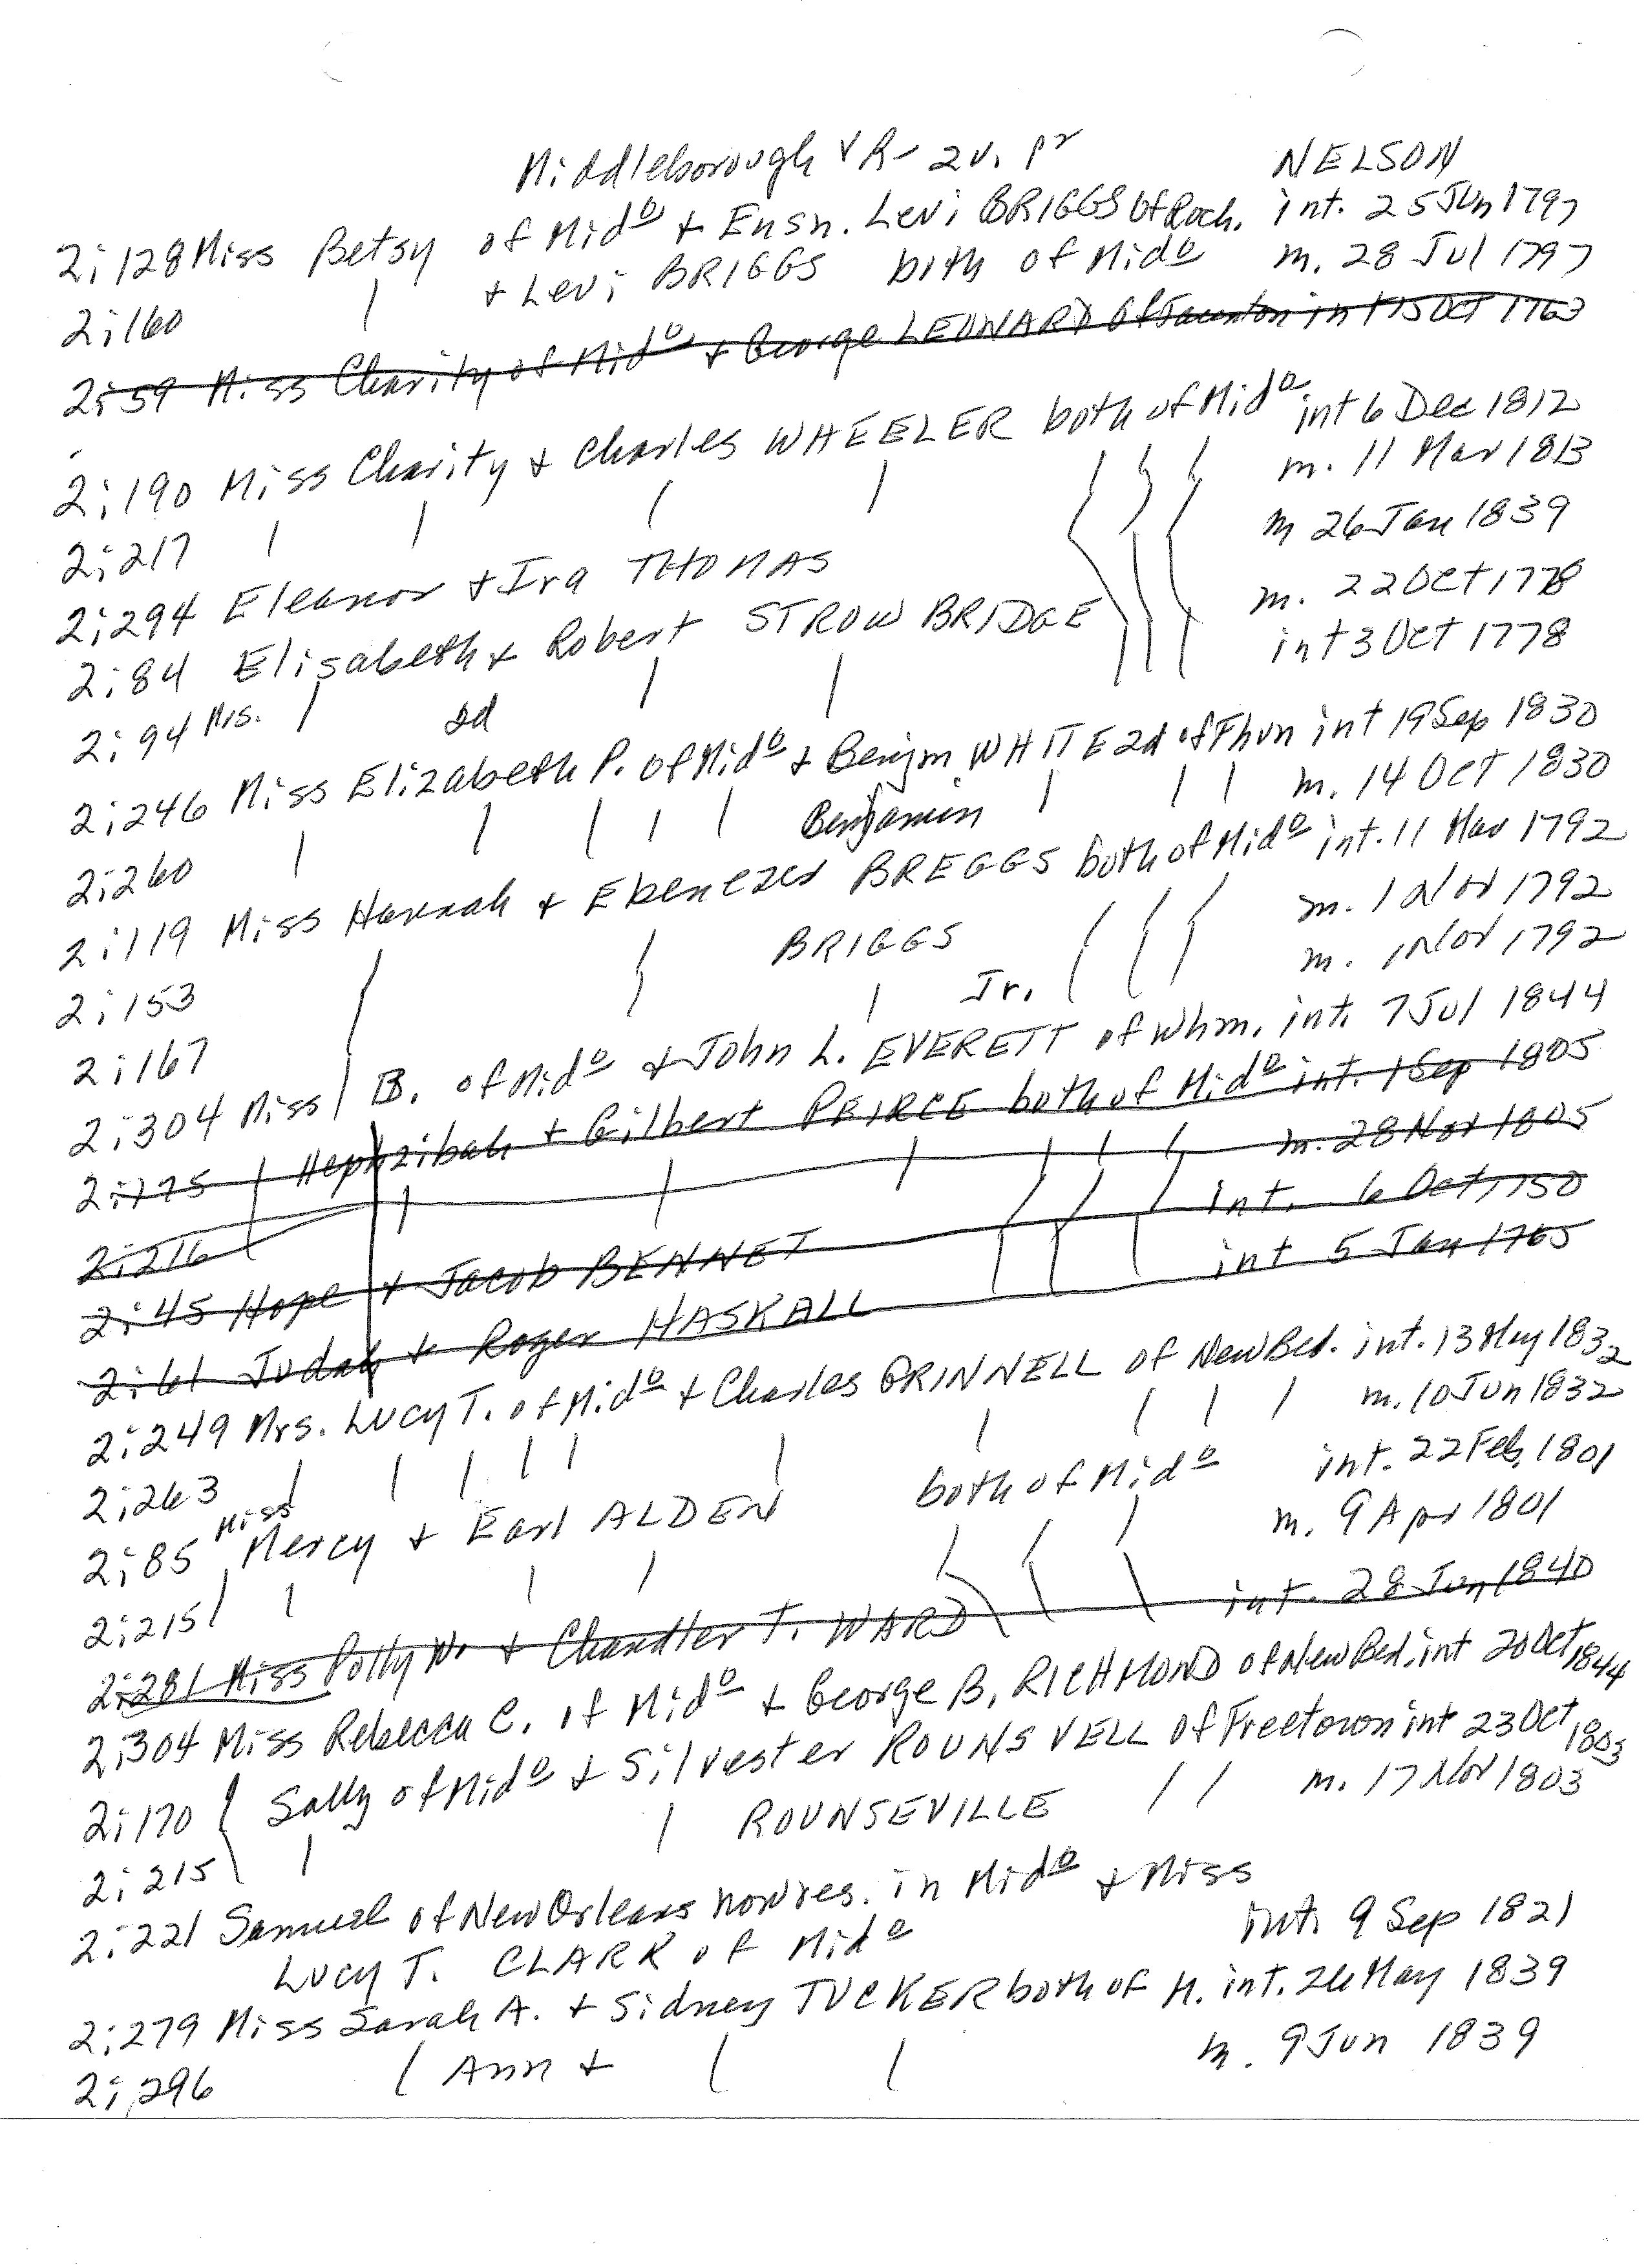 Middleborough VR - 2v. pr NELSON
2:128 Miss Betsy of Mido + Ensn. Levi BRIGGS of Roch. int. 25 Jun 1797
2:160 | + Levi BRIGGS both of Mido m. 28 Jul 1797
2:59 Miss Charity of Mido + George LEONARD of Taunton int 15 Oct 1763
2:190 Miss Charity + Charles WHEELER both of Mido int 6 Dec 1812
2:217 | | | | m. 11 Mar 1813
2:294 Eleanor + Ira THOMAS m 26 Jan 1839
2:84 Elisabeth + Robert STROWBRIDGE m. 22 Oct 1778
2:94 Mrs. | | | int 3 Oct 1778
2:246 Miss Elizabeth P. 2d of Mido + Benjm. WHITE 2d of Thun int 19 Sep 1830
2:260 | | | | | Benjamin | | | m. 14 Oct 1830
2:119 Miss Hannah + Ebenezer BREGGS both of Mido int. 11 Mar 1792
2:153 BRIGGS m. 1 Nov 1792
2:167 | Jr. m. 1 Nov 1792
2:304 Miss | B. of Mido + John L. EVERETT of Whm. int. 7 Jul 1844
2:175 | Hephzibah + Gilbert PEIRCE both of Mido int. 1 Sep 1805
2:216 | | | m. 28 Nov 1805
2:45 Hope + Jacob BENNET int. 6 Oct, 1750
2:61 Judah + Roger HASKALL int 5 Jan 1765
2:249 Mrs. Lucy T. of Mido + Charles GRINNELL of New Bed. int. 13 May 1832
2:263 | | | | | | | | | | m. 10 Jun 1832
2:85 Miss Mercy + Earl ALDEN both of Mido int. 22 Feb, 1801
2:215 | | | | m. 9 Apr 1801
2:281 Miss Polly W. + Chandler T. WARD int. 28 Jun, 1840
2:304 Miss Rebecca C. of Mido + George B. RICHMOND of New Bed. int 20 Oct 1844
2:170 Sally of Mido + Silvester ROUNSVELL of Freetown int 23 Oct 1803
2:215 | | ROUNSEVILLE | | m. 17 Nov 1803
2:221 Samuel of New Orleans now res. in Mido + Miss
Lucy T. CLARK of Mido int. 9 Sep 1821
2:279 Miss Sarah A. + Sidney TUCKER both of M. int. 26 May 1839
2:296 | Ann + | | m. 9 Jun 1839